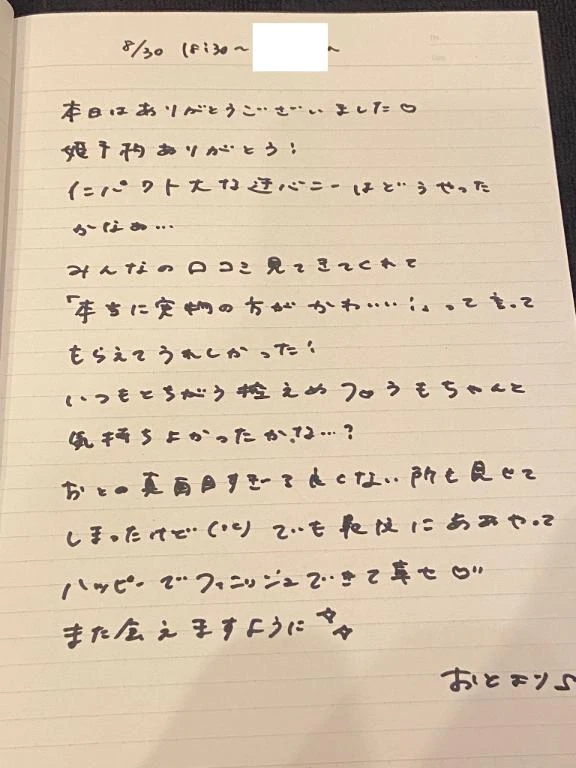 8/30 18:30〜 〜
本日はありがとうございました♡
姫予約ありがとう!
インパクト大な逆バニーはどうやった
かなぁ…
みんなの口コミ見てきてくれて
「本当に実物の方がかわいい!」って言って
もらえてうれしかった!
いつもとちがう控えめフロうもちゃんと
気持ちよかったかな…?
おとの真面目すぎて良くない所も見せて
しまったけど でも最後にあみやって
ハッピーでフィニッシュできて幸せ♡"
また会えますように☆☆
おとより♪